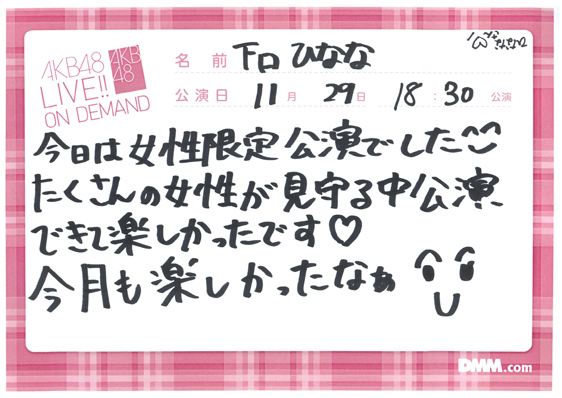 AKB48
LIVE!!
ON DEMAND
AKB
48
名前 下口ひなな
公演日 11月 29日 18:30 公演
今日は女性限定公演でした
たくさんの女性が見守る中公演
できて楽しかったです♡
今月も楽しかったなぁ
DMM.com